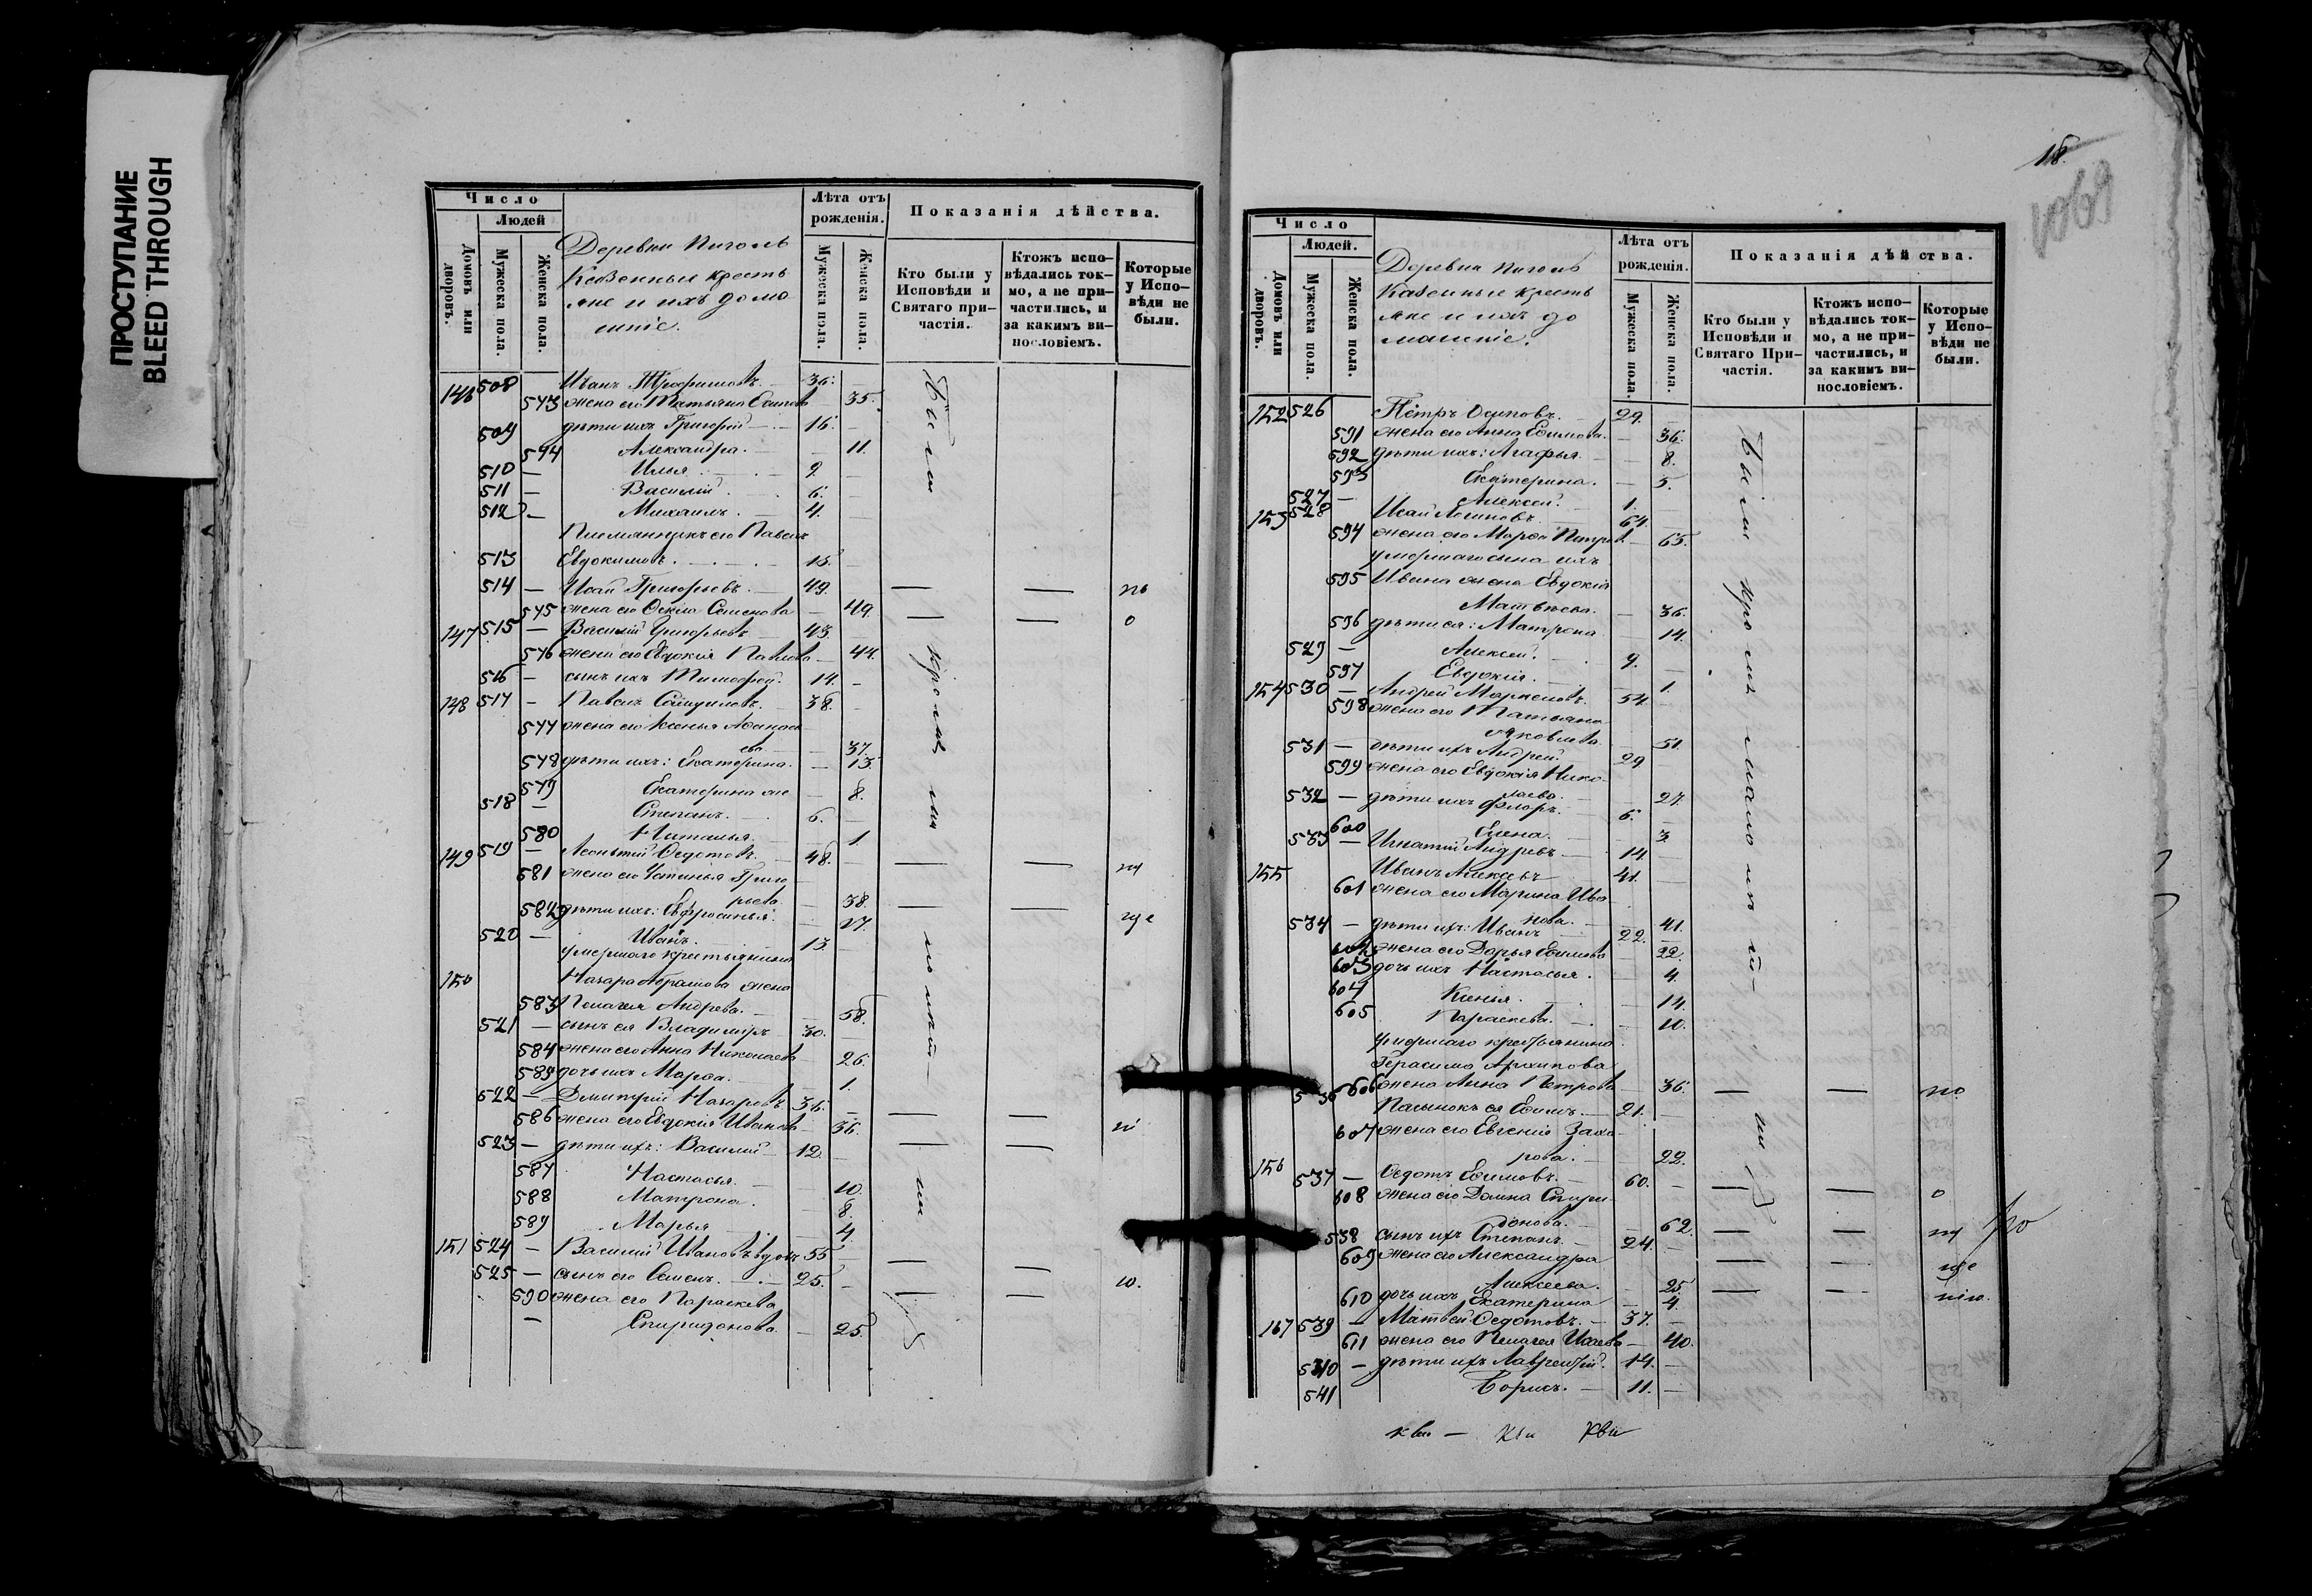 ПРОСТУПАНИЕ
BLEED THROUGH
Число
Людей
Домовъ или дворовъ.
Мужеска пола.
Женска пола.
Деревни
Казенные кресть
яне и ихъ дома
шніе.
Лѣта отъ рожденія.
Мужеска пола.
Женска пола.
Показанія дѣйства.
Кто были у Исповѣди и Святаго причастія.
Ктожъ исповѣдались токмо, а не причастились, и за какимъ винословіемъ.
Которые у Исповѣди не были.
146 508 Иванъ Трофимовъ 36.
573 жена его Татьяна 35.
509 дѣти ихъ Григорій 16.
Александра. 11.
510 — Илья 9
511 — Василій 6.
512 — Михаилъ 4.
Племянникъ его Павелъ
513 Евдокимовъ 15.
514 — Исай Григорьевъ 49. — —
575 жена его Семенова 49. — —
147 515 — Василій Григорьевъ 43.
576 жена его Евдокія Павлова 44.
516 — сынъ ихъ Тимофей. 14.
148 517 — Павелъ 38.
577 жена его Ксенья Афанась
ева 37.
578 дѣти ихъ: Екатерина. 13.
579 Екатерина 8.
518 — Степанъ. 6.
580 Наталья. 1.
149 519 — Леонтий Федотовъ 48. — —
581 жена его Устинья Григо
рьева 38. — —
582 дѣти ихъ: Ефросинья.
520 — Иванъ. 13.
умершаго крестьянина
150 Назара Абрамова жена
583 Пелагея Андрева. 58.
521 — сынъ ея Владимиръ 30.
584 жена его Анна Николаева 26.
585 дочь ихъ Марфа. 1.
522 — Дмитрій Назаровъ 36. — —
586 жена его Евдокія Иванова 36.
523 — дѣти ихъ: Василий 12. — —
587 Настасья. 10.
588 Матрона. 8.
589 Марья 4.
151 524 — Василий Ивановъ вдовъ 55 — —
525 — сынъ его Семенъ. 25. — —
590 жена его Параскева
Спиридонова. 25.
18.
Число
Людей.
Домовъ или дворовъ.
Мужеска пола.
Женска пола.
Деревни
Казенные кресть
яне и ихъ до
машніе.
Лѣта отъ рожденія.
Мужеска пола
Женска пола.
Показанія дѣйства.
Кто были у Исповѣди и Святаго Причастія.
Ктожъ исповѣдались токмо, а не причастились, и за какимъ винословіемъ.
Которые у Исповѣди не были.
152 526 Пётръ Осиповъ. 29.
591 жена его Анна Ефимова. 36.
592 дѣти ихъ: Агафья. 8.
593 Екатерина. 5.
527 — Алексей. 1.
153 528 Исай Логиновъ 64.
594 жена его Марфа Петров 65.
умершаго сына ихъ
595 Ивана жена Евдокія
Матвѣева. 36.
596 дѣти ея: Матрона 14.
529 — Алексей. 9.
597 Евдокія. 1.
154 530 — Андрей 54.
598 жена его Татьяна
Яковлева. 51.
531 — дѣти ихъ Андрей. 29
599 жена его Евдокія Нико
лаева 27.
532 — дѣти ихъ Флоръ. 6.
600 Елена. 3
533 — Игнатий Андревъ 14.
155 Иванъ 41.
601 жена его Марина Ива
нова. 41.
534 — дѣти ихъ: Иванъ 22.
602 жена его Дарья Ефимова 22.
603 дочь ихъ Настасья. 4.
604 Ксенья. 14.
605 Параскева. 10.
умершаго крестьянина
Герасима Архипова
606 жена Анна Петрова 36. — —
Пасынокъ ея Ефимъ. 21.
607 жена его Евгения Заха
рова. 22.
156 537 — Федотъ Ефимовъ. 60. — —
608 жена его Домна Спири
донова. 62. — —
538 сынъ ихъ Степанъ. 24.
609 жена его Александра — —
Алексеева. 25. — —
610 дочь ихъ Екатерина 4.
157 539 — Матвей Федотовъ. 37.
611 жена его Пелагея Исаева 40.
540 — дѣти ихъ Лаврентій. 14.
541 Борисъ. 11.